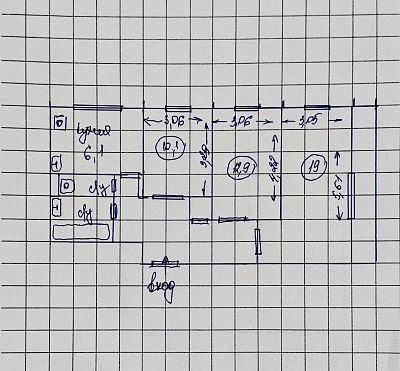 3,06
3,06
3,05
кухня
6,1
10,1
12,9
19
с/у
с/у
5,61
вход